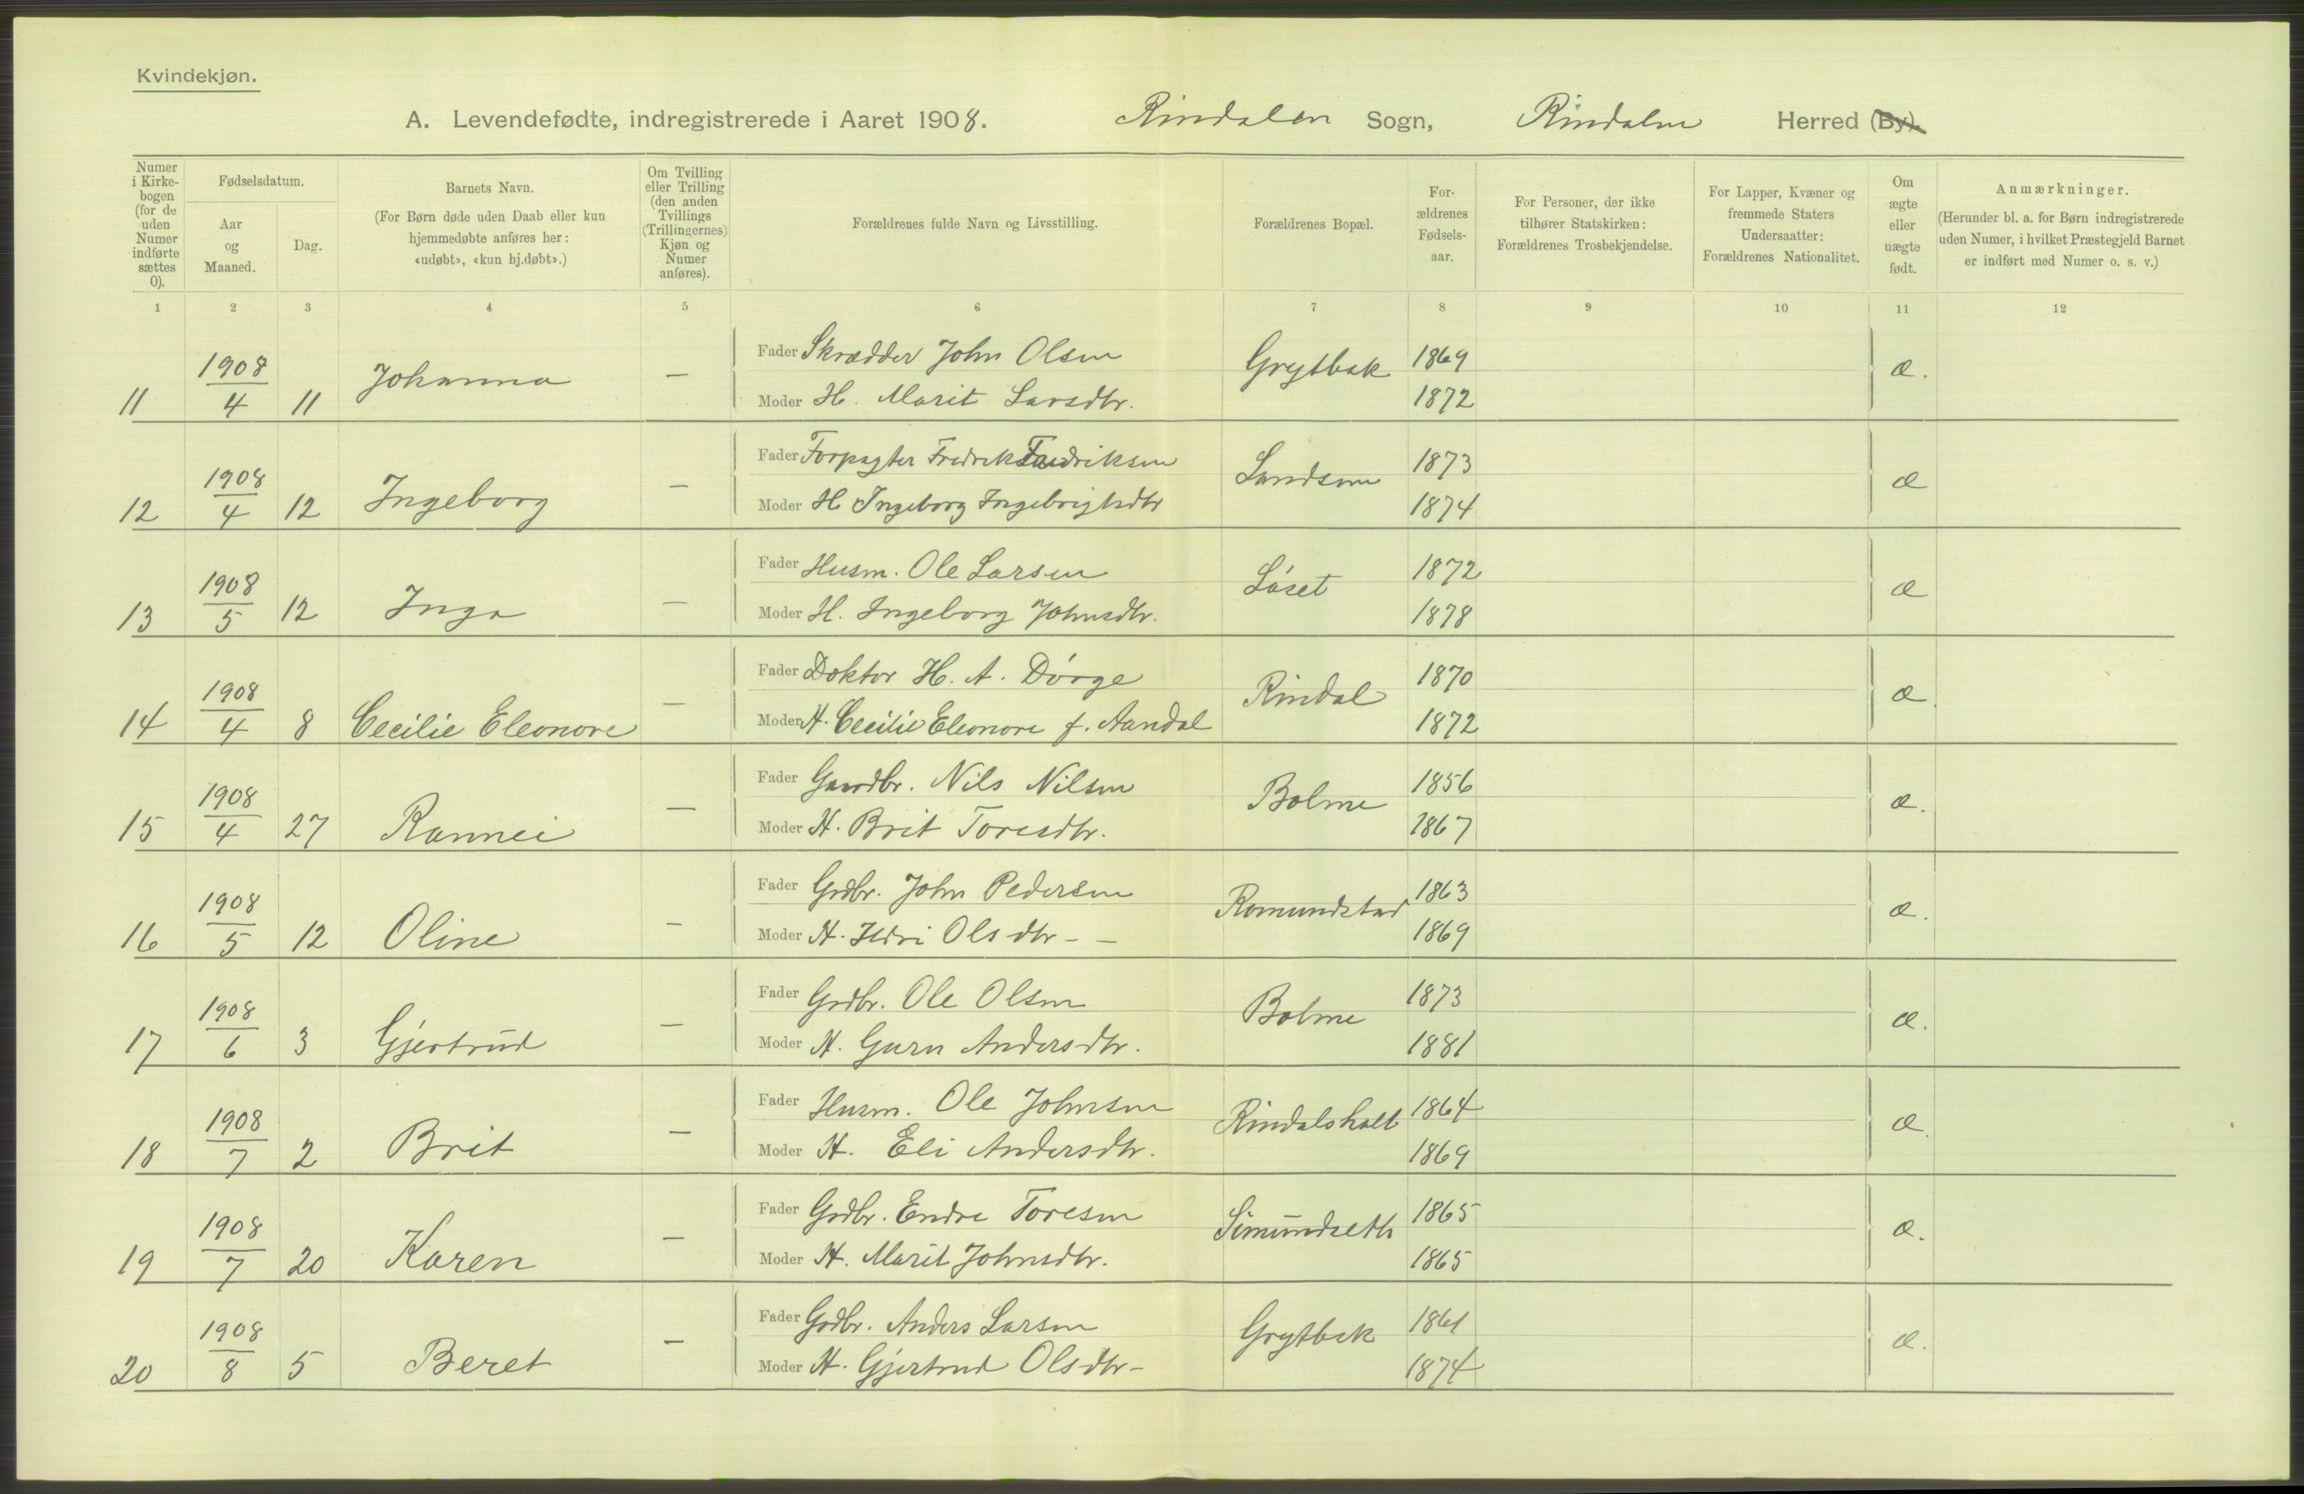 Kvindekjøn.
A. Levendefødte, indregistrerede i Aaret 1908. Rindalen Sogn, Rindalen Herred (By).
Numer i Kirke-bogen (for de uden Numer indførte sættes 0).
Fødselsdatum.
Aar og Maaned.
Dag.
Barnets Navn.
(For Børn døde uden Daab eller kun hjemmedøbte anføres her: «udøbt», «kun hj.døbt».)
Om Tvilling eller Trilling (den anden Tvillings (Trillingernes) Kjøn og Numer anføres).
Forældrenes fulde Navn og Livsstilling.
Forældrenes Bopæl.
For-ældrenes Fødsels-aar.
For Personer, der ikke tilhører Statskirken: Forældrenes Trosbekjendelse.
For Lapper, Kvæner og fremmede Staters Undersaatter: Forældrenes Nationalitet.
Om ægte eller uægte født.
Anmærkninger.
(Herunder bl. a. for Børn indregistrerede uden Numer, i hvilket Præstegjeld Barnet er indført med Numer o. s. v.)
1 2 3 4 5 6 7 8 9 10 11 12
11 1908/4 11 Johanna — Fader Skrædder John Olsen Grytbak 1869 æ.
Moder H. Marit Larsdtr. 1872
12 1908/4 12 Ingeborg — Fader Forpagter Fredrik Fredriksen Landsem 1873 æ
Moder H Ingeborg Ingebrigtsdtr 1874
13 1908/5 12 Inga — Fader Husm. Ole Larsen Løset 1872 æ
Moder H. Ingeborg Johnsdtr. 1878
14 1908/4 8 Cecilie Eleonore — Fader Doktor H. A. Dørge Rindal 1870 æ.
Moder H. Cecilie Eleonore f. Aandal 1872
15 1908/4 27 Rannei — Fader Gaardbr. Nils Nilsen Bolme 1856 æ.
Moder H. Brit Toresdtr. 1867
16 1908/5 12 Oline — Fader Grdbr. John Pedersen Romundstad 1863 æ.
Moder H. Ildri Olsdtr — 1869
17 1908/6 3 Gjertrud — Fader Grdbr. Ole Olsen Bolme 1873 æ.
Moder H. Guru Andersdtr. 1881
18 1908/7 2 Brit — Fader Husm. Ole Johnsen Rindalsholt 1864 æ.
Moder H. Eli Andersdtr. 1869
19 1908/7 20 Karen — Fader Grdbr. Endre Toresen Simundseth 1865 æ.
Moder H. Marit Johnsdtr. 1865
20 1908/8 5 Beret — Fader Grdbr. Anders Larsen Grytbak 1861 æ.
Moder H. Gjertrud Olsdtr — 1874